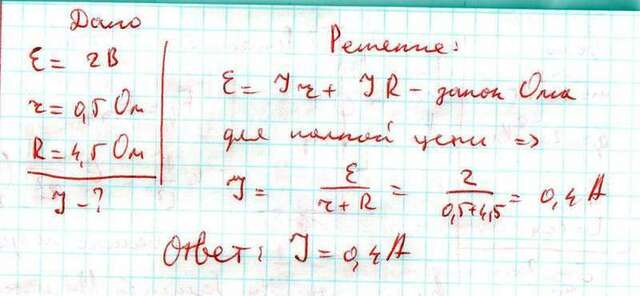 Дано
ε = 2В
r = 0,5 Ом
R = 4,5 Ом
I - ?
Решение:
ε = Ir + IR - закон Ома
для полной цепи =>
I = ε/(r+R) = 2/(0,5+4,5) = 0,4 А
Ответ: I = 0,4 А